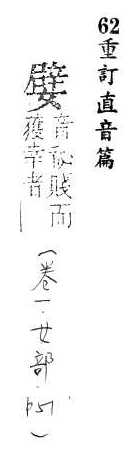 62重訂直音篇
嬖
音秘賤而
獲幸者
(卷一·女部